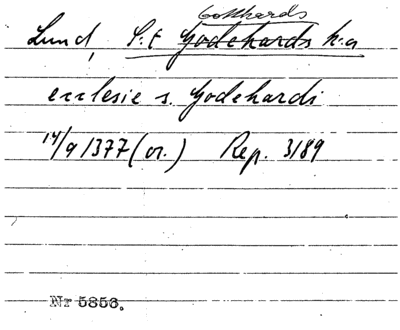 Gotthards
Lund, S:t Godehards k:a
ecclesie s. Godehardi
14/9 1377 (or.) Rep. 3189
Nr 5856.